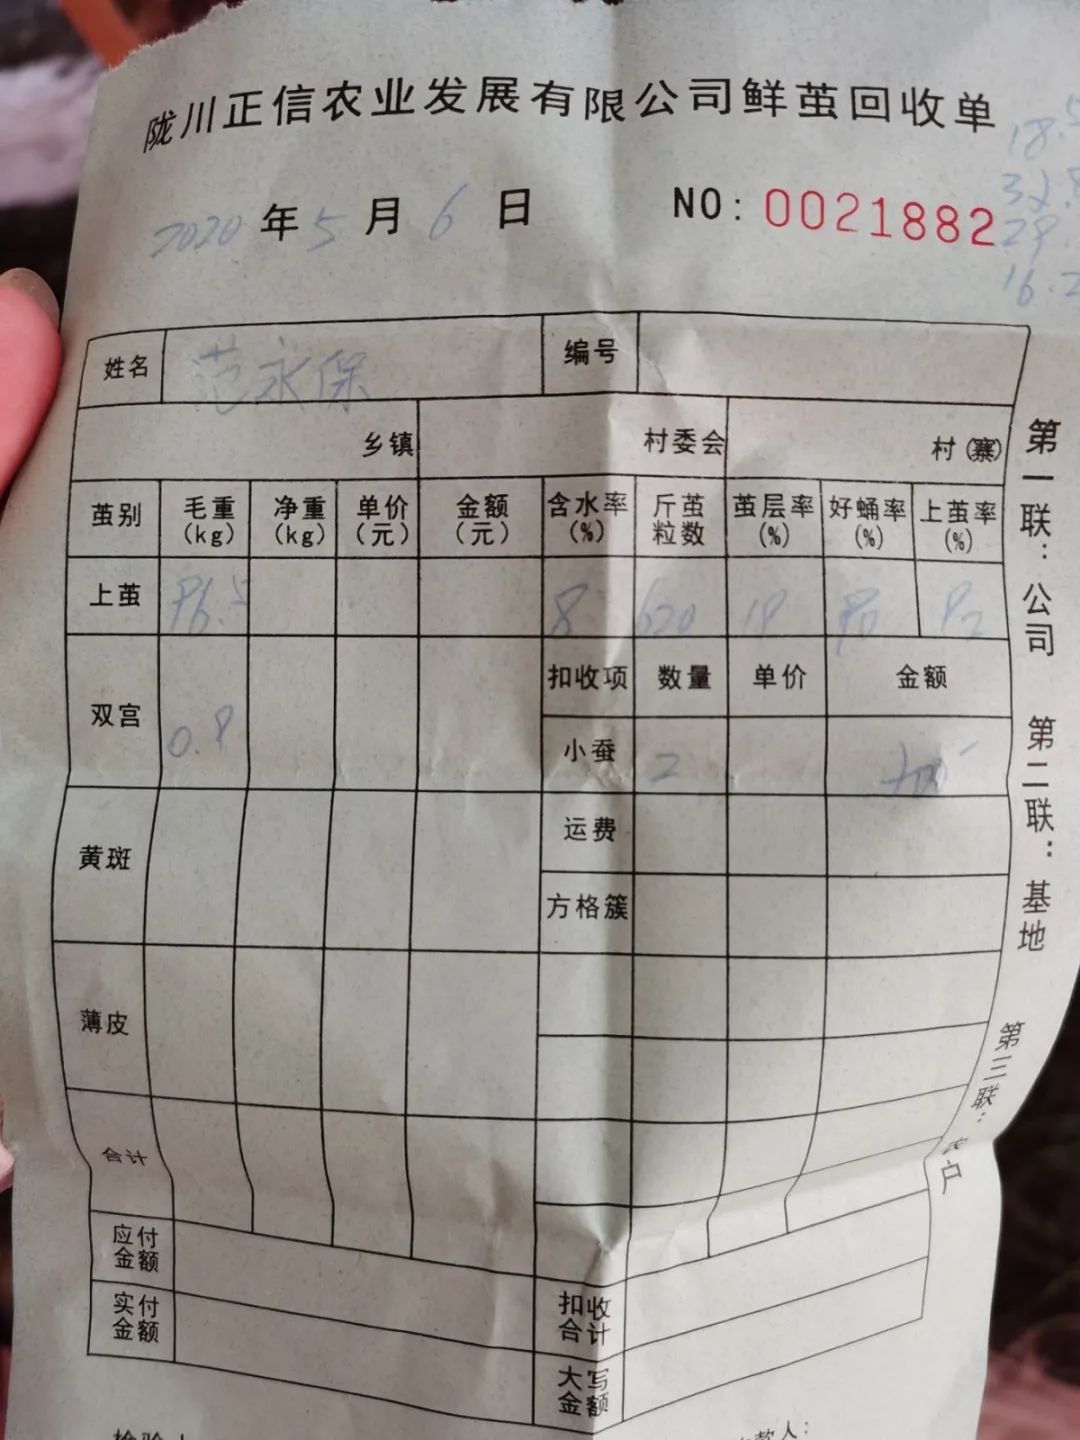 陇川正信农业发展有限公司鲜茧回收单
18.5
32.8
29.
16.2
2020 年 5 月 6 日 NO: 0021882
姓名 范永保 编号
乡镇 村委会 村(寨)
茧别 毛重(kg) 净重(kg) 单价(元) 金额(元) 含水率(%) 斤茧粒数 茧层率(%) 好蛹率(%) 上茧率(%)
上茧 96.5 8 620 19 92
扣收项 数量 单价 金额
双宫 0.8
小蚕 2
黄斑 运费
方格簇
薄皮
合计
应付金额
实付金额 扣收合计
大写金额
第一联：公司 第二联：基地 第三联：客户